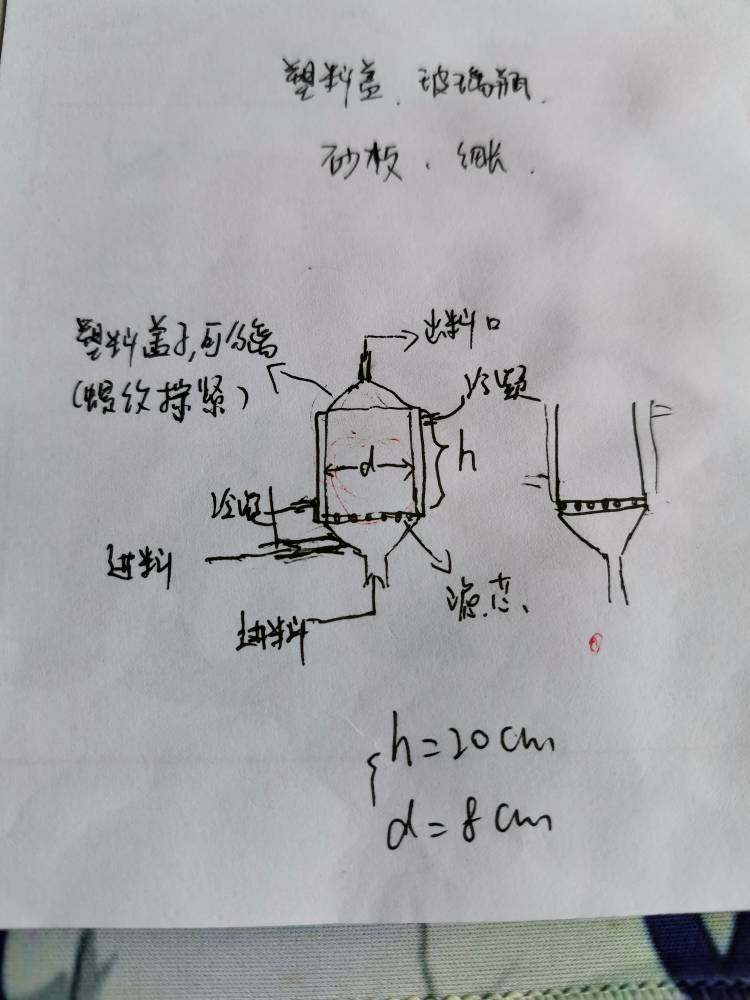 塑料盖、玻璃瓶、
砂板、细长、
塑料盖子,可分离
(螺纹拧紧)
出料口
冷凝
d
h
冷凝
进料
滤芯、
进料
h=20cm
d=8cm